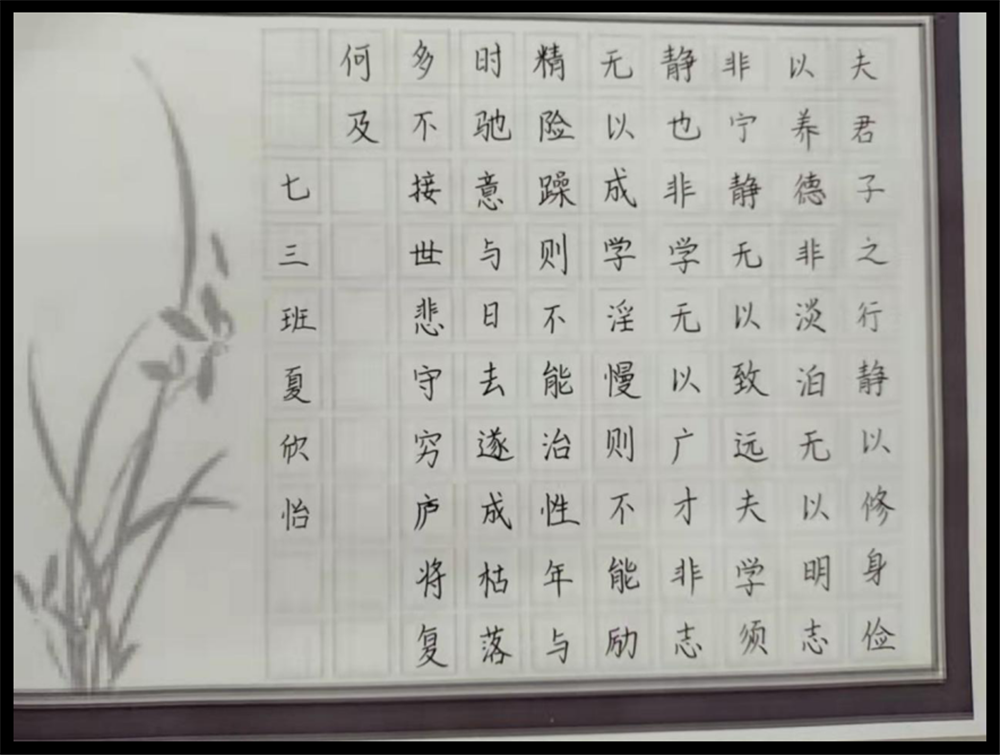 夫君子之行静以修身俭
以养德非淡泊无以明志
非宁静无以致远夫学须
静也非学无以广才非志
无以成学淫慢则不能励
精险躁则不能治性年与
时驰意与日去遂成枯落
多不接世悲守穷庐将复
何及
七三班夏欣怡